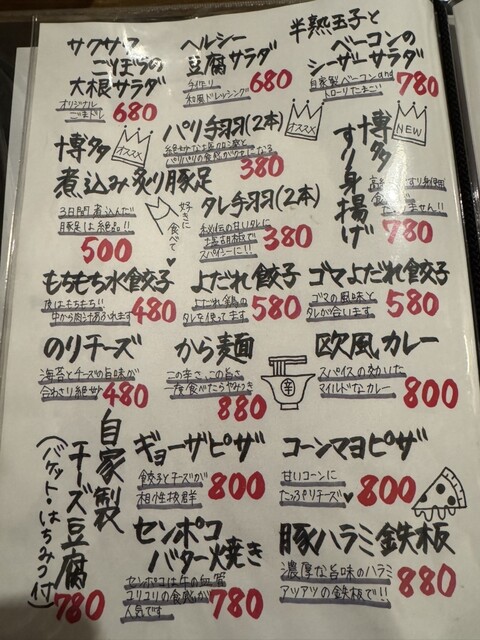 サクサク
ごぼうの
大根サラダ
オリジナル
ごまドレ
680
ヘルシー
豆腐サラダ
手作り
和風ドレッシング
680
半熟玉子と
ベーコンの
シーザーサラダ
自家製ベーコンand
トローリたまご!!
780
博多
オススメ
煮込み炙り豚足
3日間煮込んだ
豚足は絶品!!
500
好きに
食べて
パリ手羽(2本)
オススメ
パリパリの食感がクセになる
380
タレ手羽(2本)
秘伝の甘いタレに
塩胡椒で
スパイシーに!!
380
博多
すり身揚げ
NEW
780
もちもち水餃子
皮はもちもち!!
中から肉汁あふれます
480
よだれ餃子
よだれ鶏の
タレを使ってます
580
ゴマよだれ餃子
ゴマの風味と
タレが合います
580
のりチーズ
海苔とチーズの旨味が
合わさり絶妙
480
から麺
この辛さ、この旨さ
一度食べたらやみつき
880
辛
欧風カレー
スパイスの効いた
マイルドなカレー
800
自家製
チーズ豆腐
(バケット・はちみつ付)
780
ギョーザピザ
餃子とチーズが
相性抜群
800
コーンマヨピザ
甘いコーンに
たっぷりチーズ♥
800
センポコ
バター焼き
センポコは牛の血管
コリコリの食感が
人気です
780
豚ハラミ鉄板
濃厚な旨味のハラミ
アツアツの鉄板で!!
880